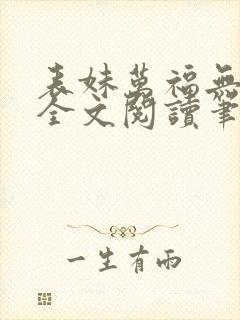 表妹萬福無
全文閱讀筆
一生有雨